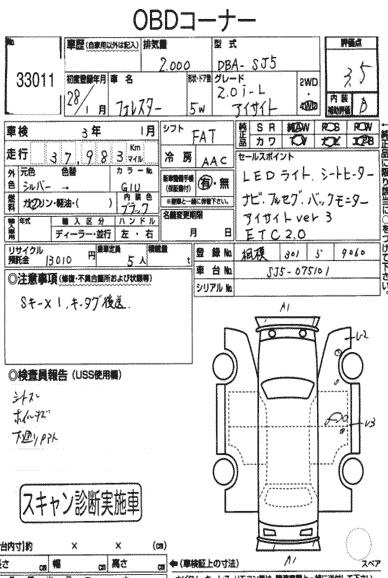 OBDコーナー
No. 33011
車歴 (自家用以外は記入) 排気量 2.000 型式 DBA-SJ5
評価点 3.5
初度登録年月 28年 1月 車名 フォレスター 形状・ドア数 5W グレード 2.0i-L アイサイト 2WD 4WD
内装補助評価 B
車検 3年 1月 シフト FAT 純正品 SR AW PS PW
カワ
走行 37,983 Km マイル 冷房 AAC
セールスポイント
外色 元色 シルバー → 色替 カラーNo. G1U
LEDライト、シートヒーター
ナビ、フルセグ、バックモニター
アイサイト ver 3
ETC 2.0
燃料 ガソリン・軽油・( ) 内装色 ブラック
新車整備手帳(保証書付) 有・無
名義変更期限 月 日
年式 輸入区分 ディーラー・並行 ハンドル 左・右
リサイクル預託金 13010円 乗車定員 5人 積載量 t
登録No. 相模 301 ち 9060
車台No. SJ5-075101
シリアルNo.
◎注意事項(修復・不具合箇所および状態等)
スキー×1、キータグ後送
◎検査員報告 (USS使用欄)
シトズレ
ホイールキズ
下廻りサビ
A1
U2
U3
A1
スキャン診断実施車
台内寸]約 × × (cm)
長さ cm 幅 cm 高さ cm ←(車検証上の寸法)
スペア
←純正品に限り該当に○をつけて下さい。